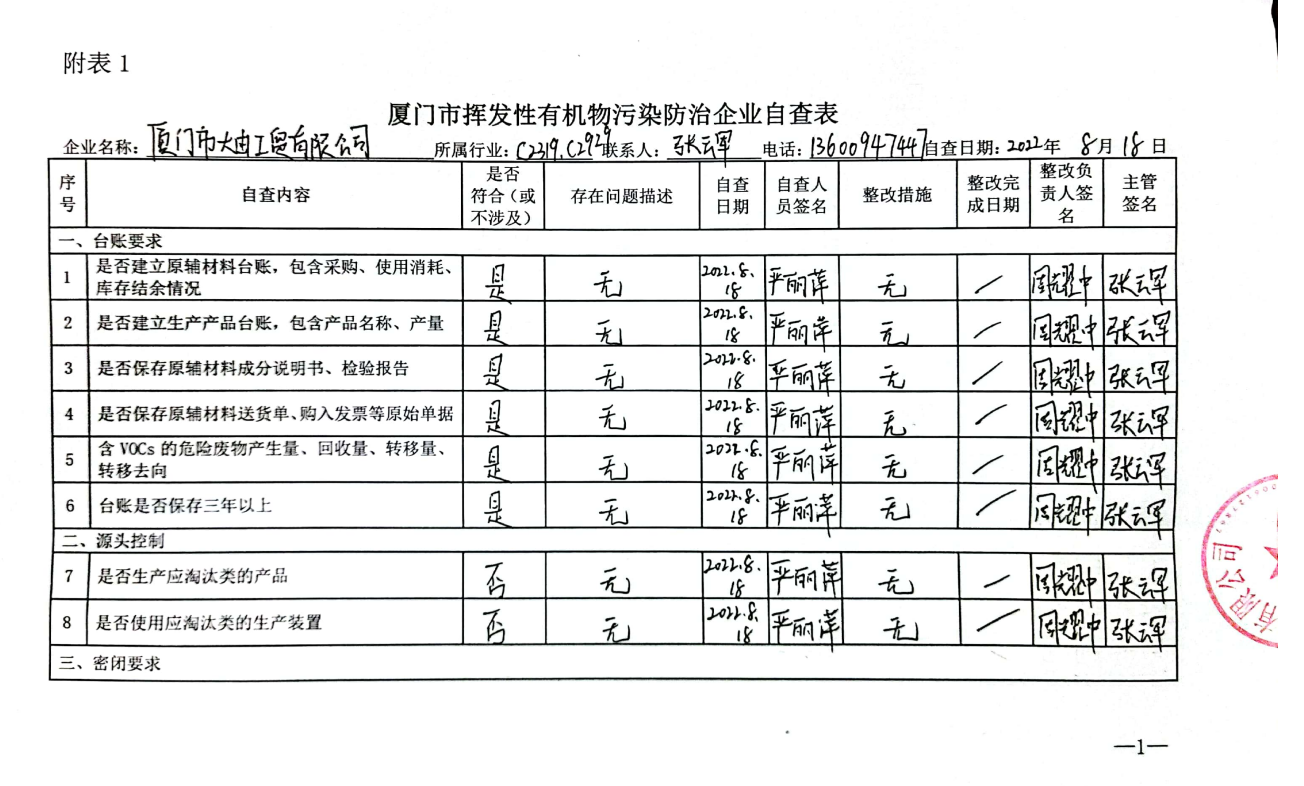 附表 1
厦门市挥发性有机物污染防治企业自查表
企业名称: 厦门市大由工贸有限公司 所属行业: C2319.C2929 联系人: 张云军 电话: 13600947447 自查日期: 2022年 8月 18日
序号 自查内容 是否符合(或不涉及) 存在问题描述 自查日期 自查人员签名 整改措施 整改完成日期 整改负责人签名 主管签名
一、台账要求
1 是否建立原辅材料台账，包含采购、使用消耗、库存结余情况 是 无 2022.8.18 严丽萍 无 / 周耀中 张云军
2 是否建立生产产品台账，包含产品名称、产量 是 无 2022.8.18 严丽萍 无 / 周耀中 张云军
3 是否保存原辅材料成分说明书、检验报告 是 无 2022.8.18 严丽萍 无 / 周耀中 张云军
4 是否保存原辅材料送货单、购入发票等原始单据 是 无 2022.8.18 严丽萍 无 / 周耀中 张云军
5 含 VOCs 的危险废物产生量、回收量、转移量、转移去向 是 无 2022.8.18 严丽萍 无 / 周耀中 张云军
6 台账是否保存三年以上 是 无 2022.8.18 严丽萍 无 / 周耀中 张云军
二、源头控制
7 是否生产应淘汰类的产品 否 无 2022.8.18 严丽萍 无 / 周耀中 张云军
8 是否使用应淘汰类的生产装置 否 无 2022.8.18 严丽萍 无 / 周耀中 张云军
三、密闭要求
有限公司
—1—